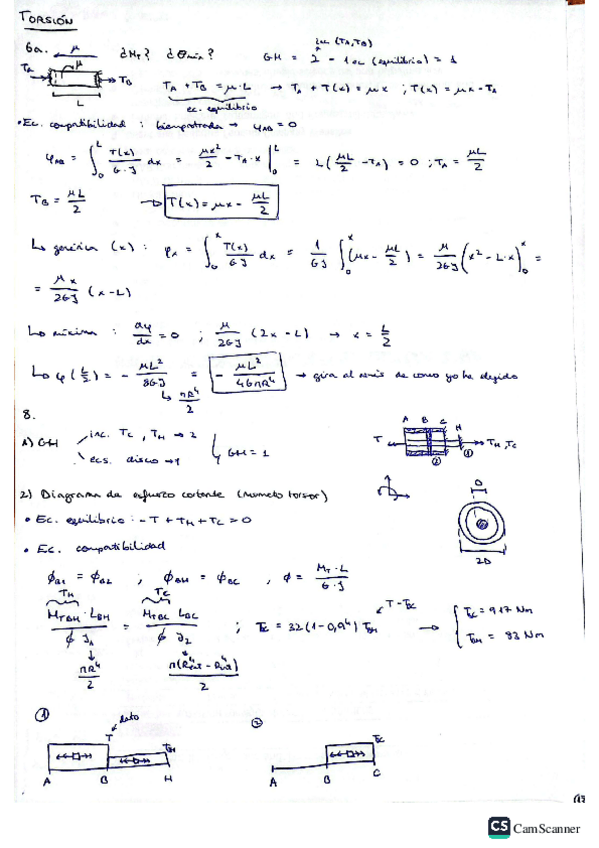 TORSIÓN
6a. μ ¿MT? ¿θmáx? GH = 2 - 1 ec (equilibrio) = 1
inc (TA, TB)
TA TB L
TA + TB = μ·L → TA + T(x) = μx ; T(x) = μx - TA
ec. equilibrio
• Ec. compatibilidad : biempotrada → φAB = 0
φAB = ∫₀ᴸ T(x)/G·J dx = μx²/2 - TA·x |₀ᴸ = L(μL/2 - TA) = 0 ; TA = μL/2
TB = μL/2 → T(x) = μx - μL/2
↳ genérica (x) : φx = ∫₀ˣ T(x)/GJ dx = 1/GJ ∫₀ˣ (μx - μL/2) = μ/2GJ (x² - L·x)₀ˣ =
= μx/2GJ (x-L)
↳ máxima : dφ/dx = 0 ; μ/2GJ (2x - L) → x = L/2
↳ φ(L/2) = - μL²/8GJ = - μL²/4GπR⁴ → gira al revés de como yo he dejado
↳ πR⁴/2
8.
A) GH inc. TC, TH → 2
ecs. disco → 1
GH = 1
A B C H
T TH, TC
② ①
2) Diagrama de esfuerzo cortante (momento torsor)
D
2D
• Ec. equilibrio : -T + TH + TC = 0
• Ec. compatibilidad
ϕB1 = ϕB2 , ϕBH = ϕBC , ϕ = MT·L/G·J
TH TC
MTBH·LBH/G J1 = MTBC LBC/G J2 ; TC = 32(1-0,9⁴) TBH → TC = 917 Nm
T - TBC
TBH = 83 Nm
πR⁴/2 π(Rext⁴ - Rint⁴)/2
① dato ②
T TBH TBC
A B H A B C
CS CamScanner